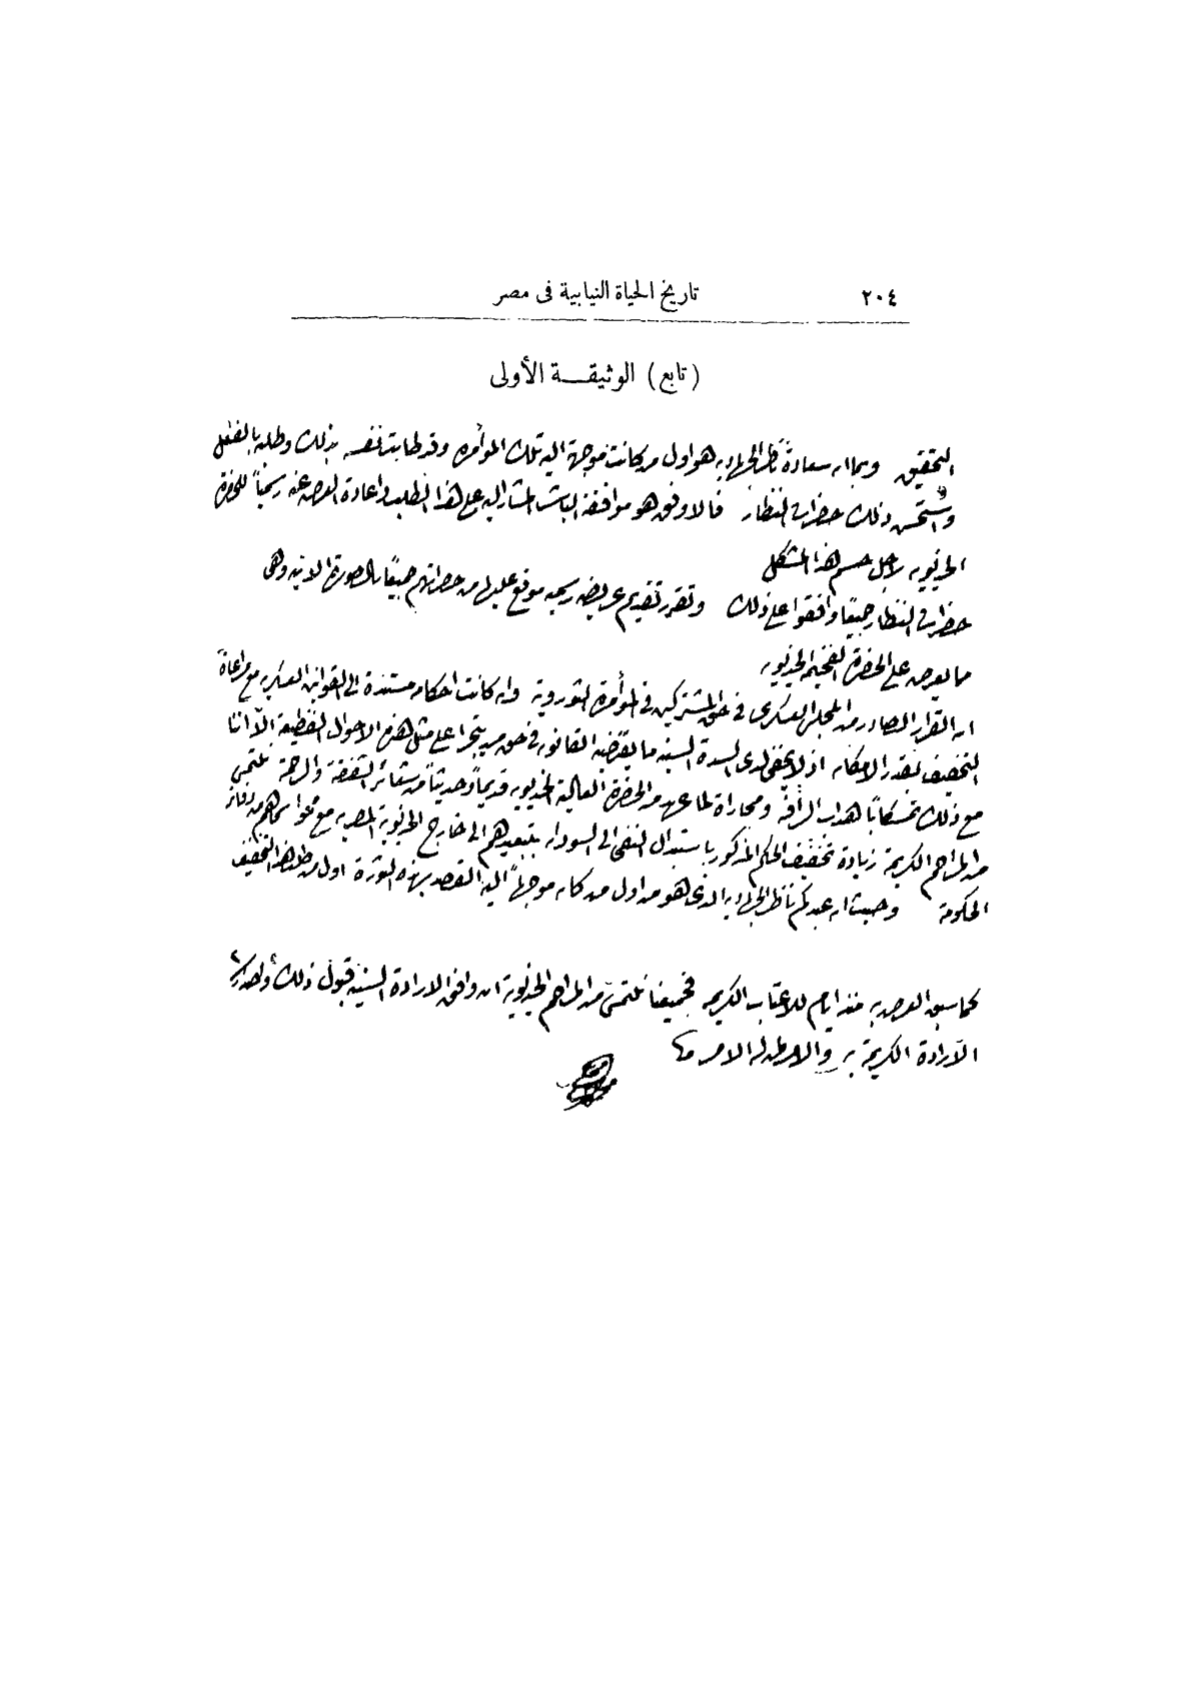 ٢٠٤
تاريخ الحياة النيابية فى مصر
(تابع) الوثيقـــة الأولى
التحقيق وبما ان سعادة ناظر الجهاديه هو اول من كانت موجهة اليه تلك المؤامره وقد طابت نفسه بذلك وطلبه بالفعل
واستحسن ذلك حضرات النظار فالاوفق هو موافقة الباشا المشار اليه على هذا الطلب واعادة العرض عنه رسمياً للحضرة
الخديويه لاجل حسم هذا المشكل
حضرات النظار جميعاً وافقوا على ذلك وتقرر تقديم عريضه رسميه موقع عليها من حضراتهم جميعاً بالصورة الاتيه وهى
ما يعرض على الحضرة الفخيمة الخديويه
ان القرار الصادر من المجلس العسكرى فى حق المشتركين فى المؤامرة الثوروية وان كانت احكامه مستندة الى القوانين العسكريه مع مراعاة
التخفيف بقدر الامكان اذ لا يخفى لدى السدة السنيه ما يقتضيه القانون فى حق من يتجرا على مثل هذه الاحوال الفظيعة الّا اننا
مع ذلك تمسكاً باهداب الرافه ومجاراة لما عهد من الحضرة العالية الخديويه قديماً وحديثاً من شعائر الشفقة والرحمة نلتمس
من المراحم الكريمة زيادة تخفيف الحكم المذكور باستبدال النفى الى السودان بتبعيدهم الى خارج الخديوية المصريه مع محو اسماهم من دفاتر
الحكومة وحيث ان عبدكم ناظر الجهاديه الذى هو من اول من كان موجهاً اليه القصد بهذه الثورة اول من طلب هذا التخفيف
كما سبق العرض به منذ ايام للاعتاب الكريمه فجميعنا نلتمس من المراحم الخديوية ان وافق الارادة السنيه قبول ذلك واصدار
الارادة الكريمة به والامر لمن له الامر